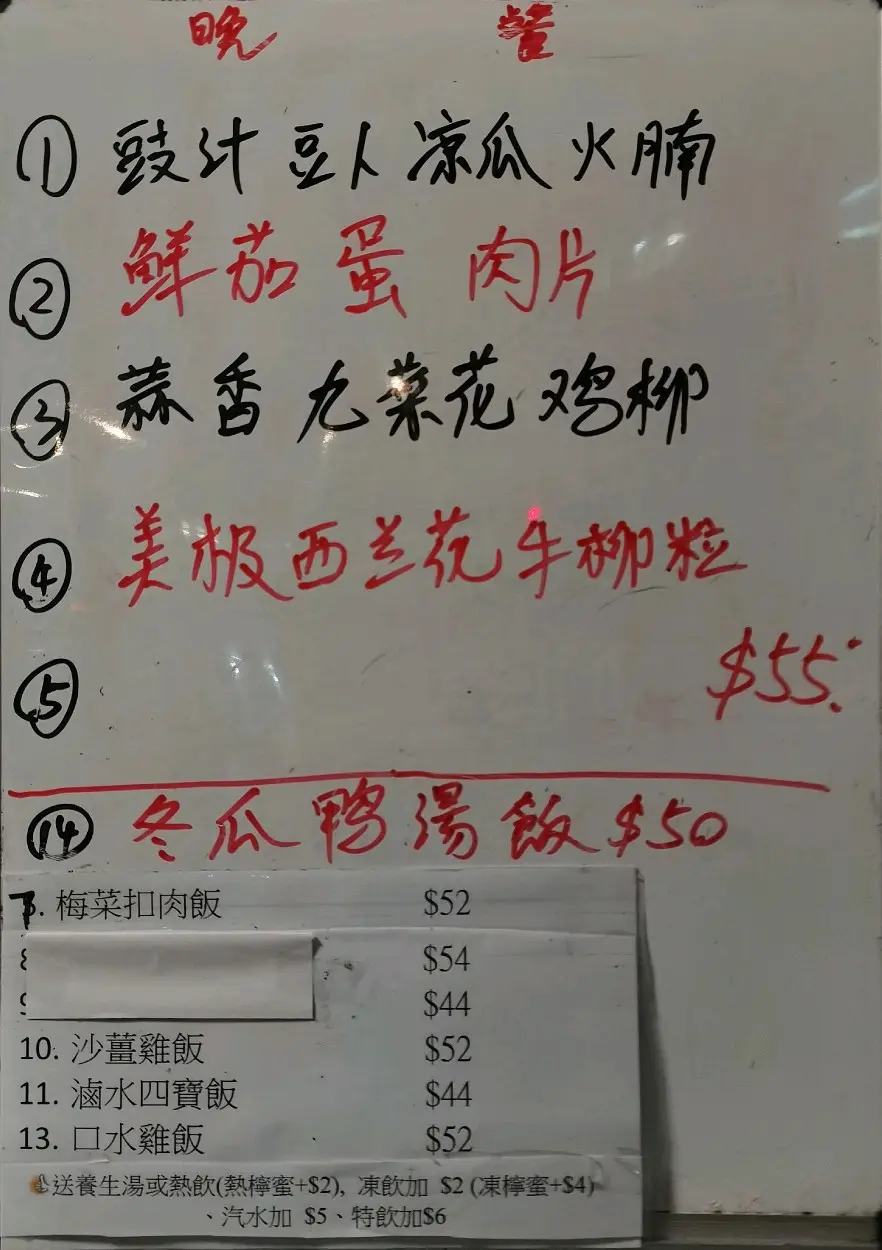 晚 營
① 豉汁 豆卜 凉瓜 火腩
② 鮮茄 蛋 肉片
③ 蒜香 九菜花 鸡柳
④ 美极西兰花牛柳粒
$55.
⑤
⑭ 冬瓜 鸭湯飯 $50
7. 梅菜扣肉飯 $52
$54
$44
10. 沙薑雞飯 $52
11. 滷水四寶飯 $44
13. 口水雞飯 $52
👍送養生湯或熱飲(熱檸蜜+$2), 凍飲加 $2 (凍檸蜜+$4)
、汽水加 $5、特飲加$6